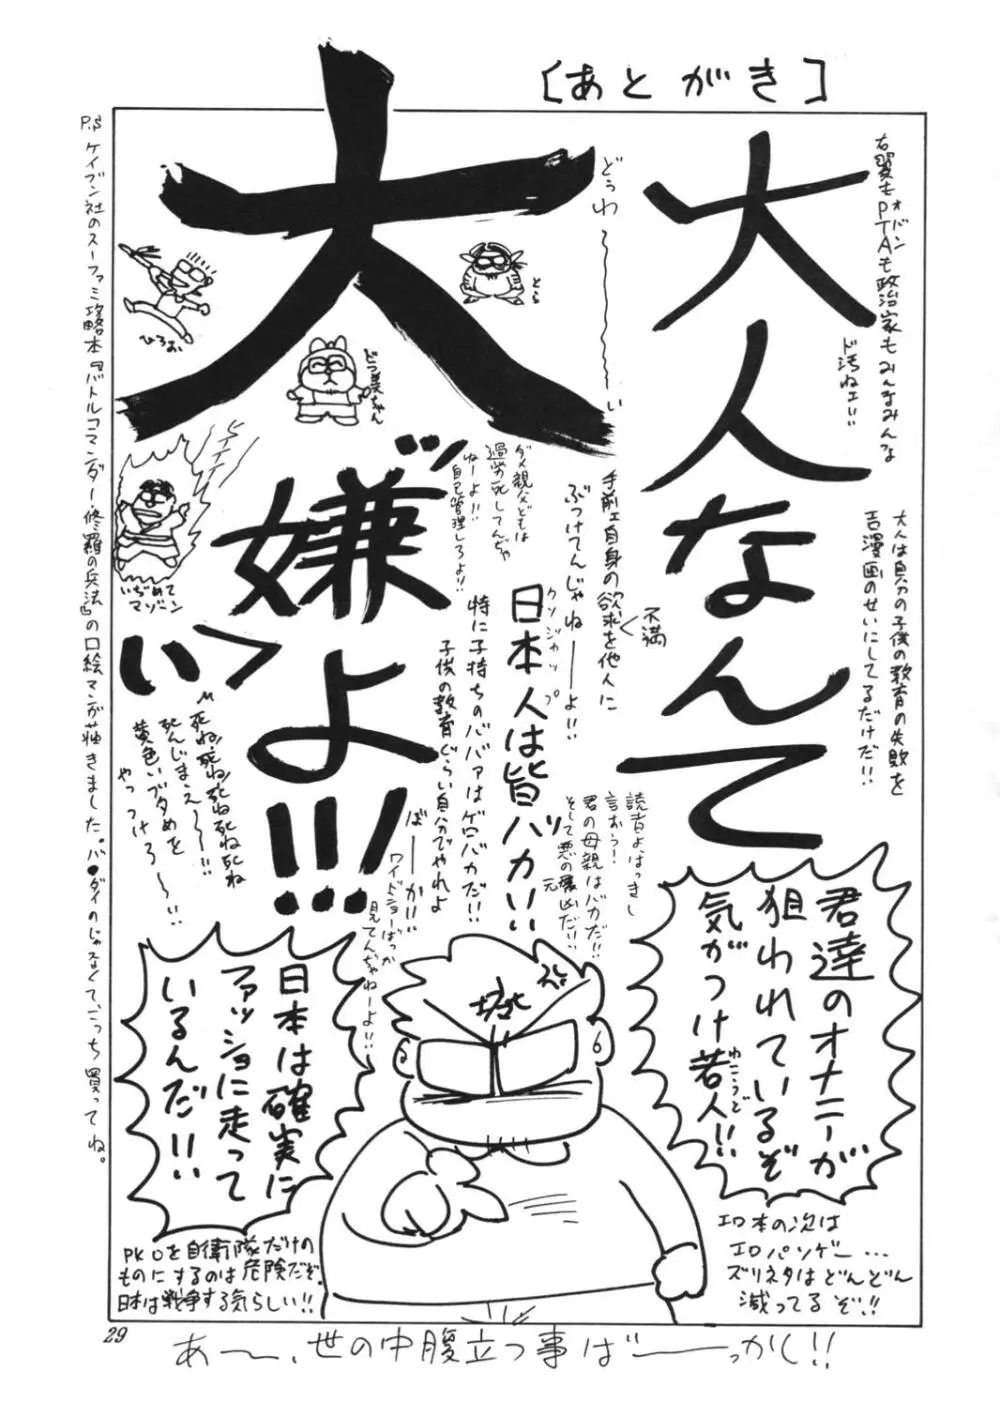 [あとがき]
大人なんて
大嫌いよッ!!!
右翼もPTAも政治家もみんなみんな
オバン
ド汚ねェ!!
大人は自分の子供の教育の失敗を
吾漫画のせいにしてるだけだ!!
どぅわ〜〜い
手前ェ自身の欲求を他人に
不満
ぶつけてんじゃねーーよ!!
日本人は皆バカ!!
クソジャップ
ダメ親父どもは
過労死してんぢゃ
ねーよ!!
自己管理しろよ!!
特に子持ちのババァはゲロバカだ!!
子供の教育ぐらい自分でやれよ
ばーーか!!
ワイドショーばっか
見てんぢゃねーよ!!
読者よ、はっきし
言おぅ!
君の母親はバカだ!!
そして悪の元凶だ!!
死ね死ね死ね死ね死ね
死んじまえ〜〜!!
黄色いブタめを
やっつけろ〜〜!!
ひろお
とら
どつ美ちゃん
いぢめて
マゾーン
君達のオナニーが
狙われているぞ
気がつけ若人!!
わこうど
日本は確実に
ファッショに走って
いるんだ!!
エロ本の次は
エロパソゲー…
ズリネタはどんどん
減ってるぞ!!
PKOを自衛隊だけの
ものにするのは危険だぞ。
日本は戦争する気らしい!!
P.S ケイブン社のスーファミ攻略本『バトルコマンダー・修羅の兵法』の口絵マンガ描きました。バ●ダイのじゃなくて、こっち買ってね。
29
あ〜、世の中腹立つ事ば──っかし!!